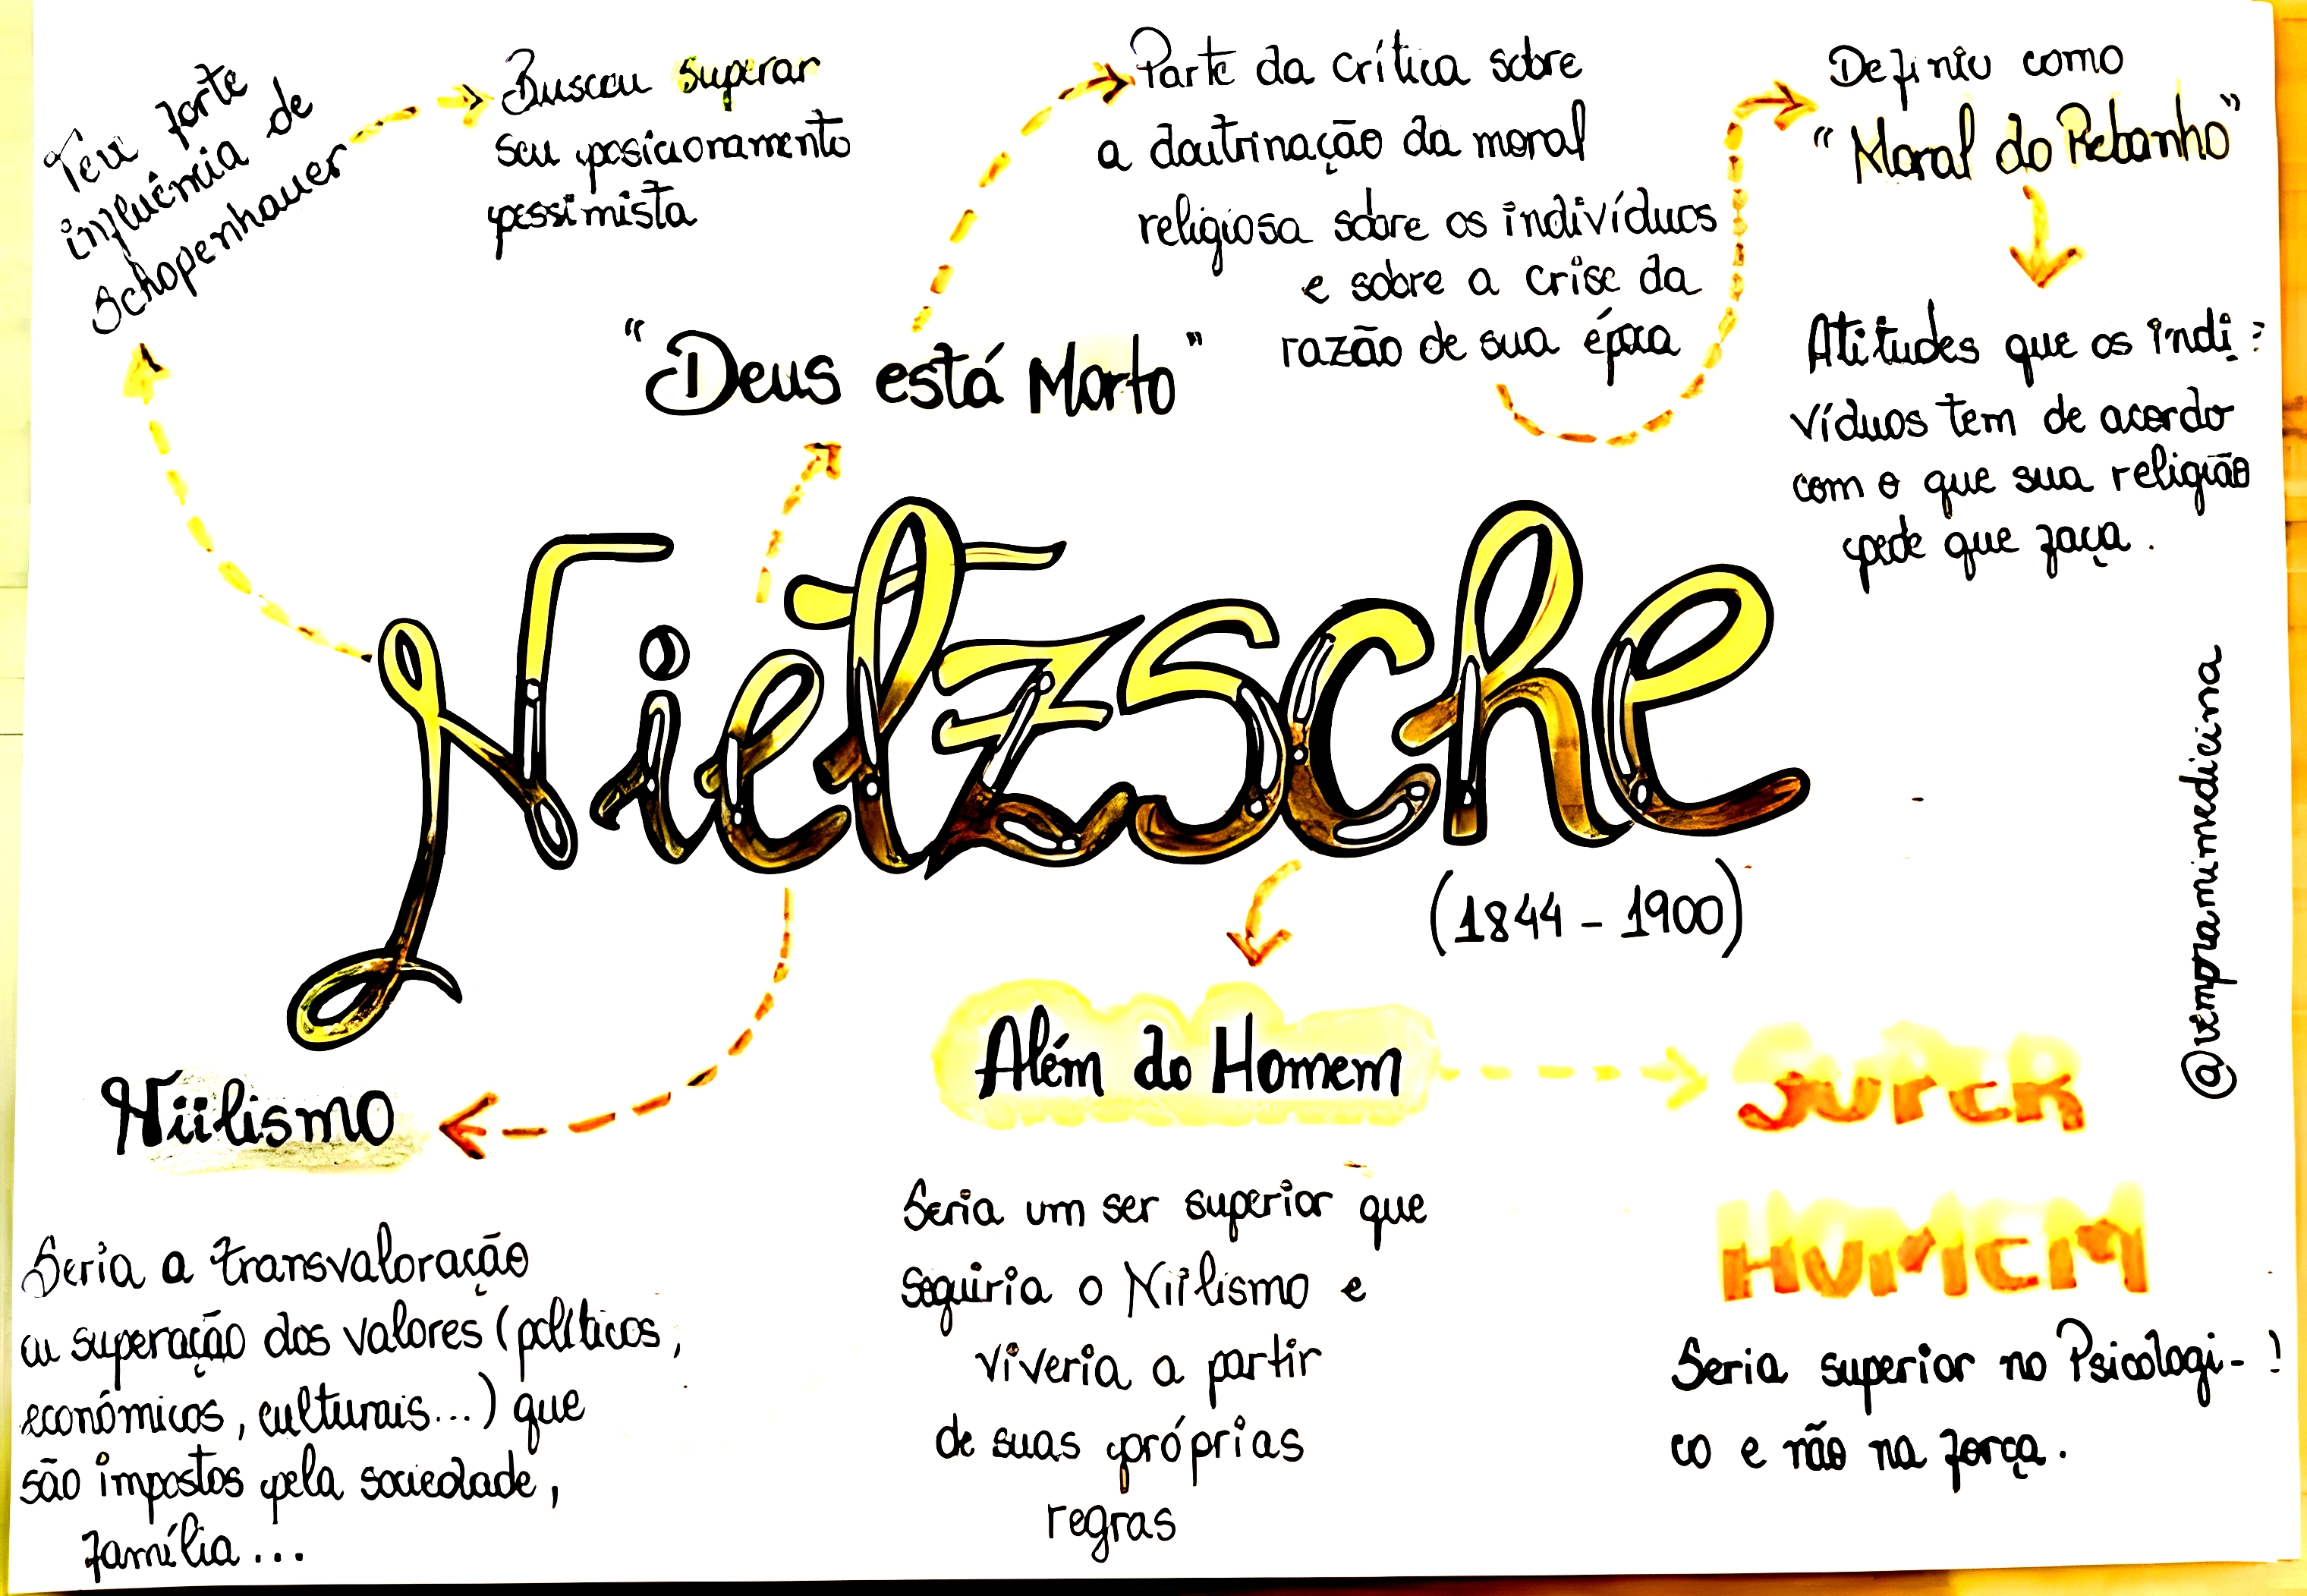 Teve forte
influência de
Schopenhauer
Buscou superar
seu posicionamento
pessimista
"Deus está Morto"
Parte da crítica sobre
a doutrinação da moral
religiosa sobre os indivíduos
e sobre a crise da
razão de sua época
Definiu como
"Moral do Rebanho"
Atitudes que os indi-
víduos tem de acordo
com o que sua religião
pede que faça.
Nietzsche
(1844 - 1900)
@vempramimmedicina
Niilismo
Seria a transvaloração
ou superação dos valores (políticos,
econômicos, culturais...) que
são impostos pela sociedade,
família...
Além do Homem
Seria um ser superior que
seguiria o Niilismo e
viveria a partir
de suas próprias
regras
SUPER
HOMEM
Seria superior no Psicologi-
co e não na força.